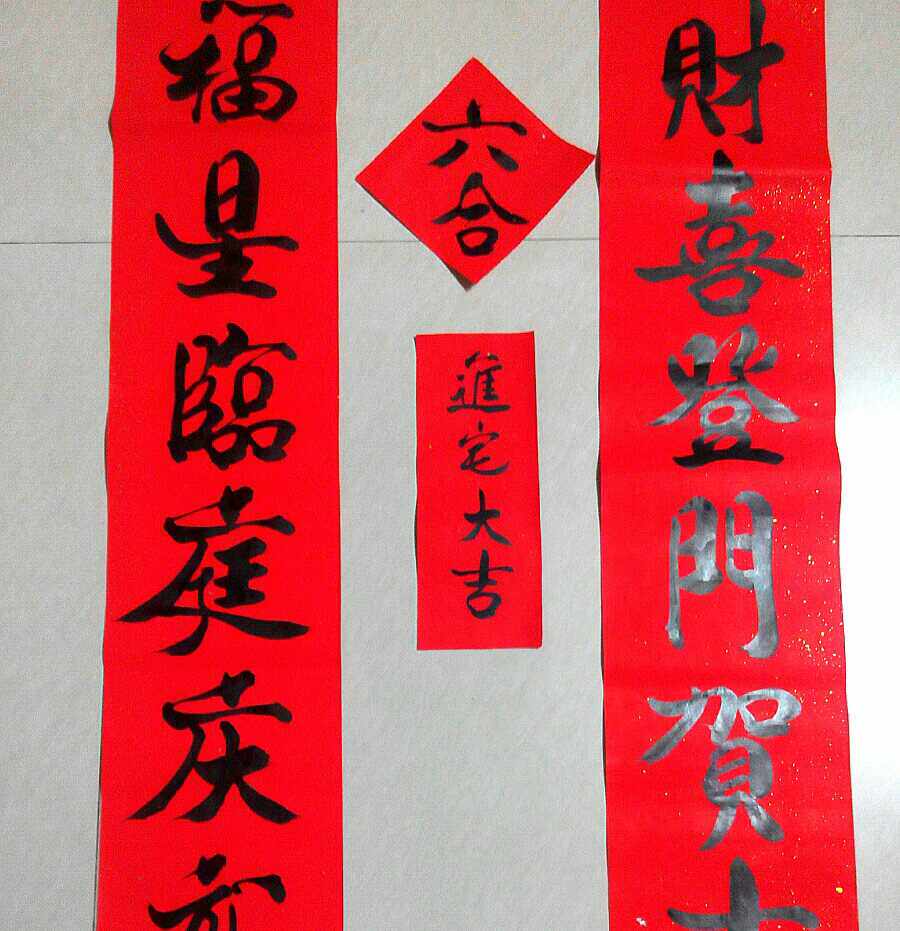 財喜登門賀
六合
進宅大吉
福星臨庭庆